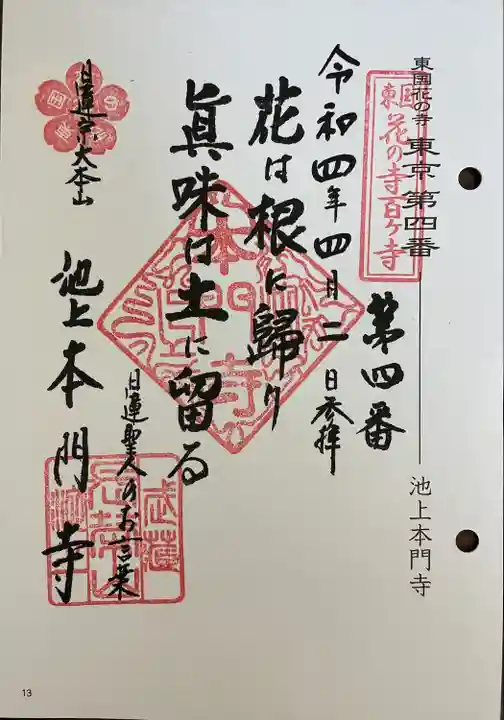 東国花の寺 東京 第四番
池上本門寺
東国
花の寺百ケ寺
第四番
令和四年四月二日参拝
花は根に歸り
眞味は土に留る
日蓮聖人のお言葉
日蓮宗大本山
池上本門寺
13